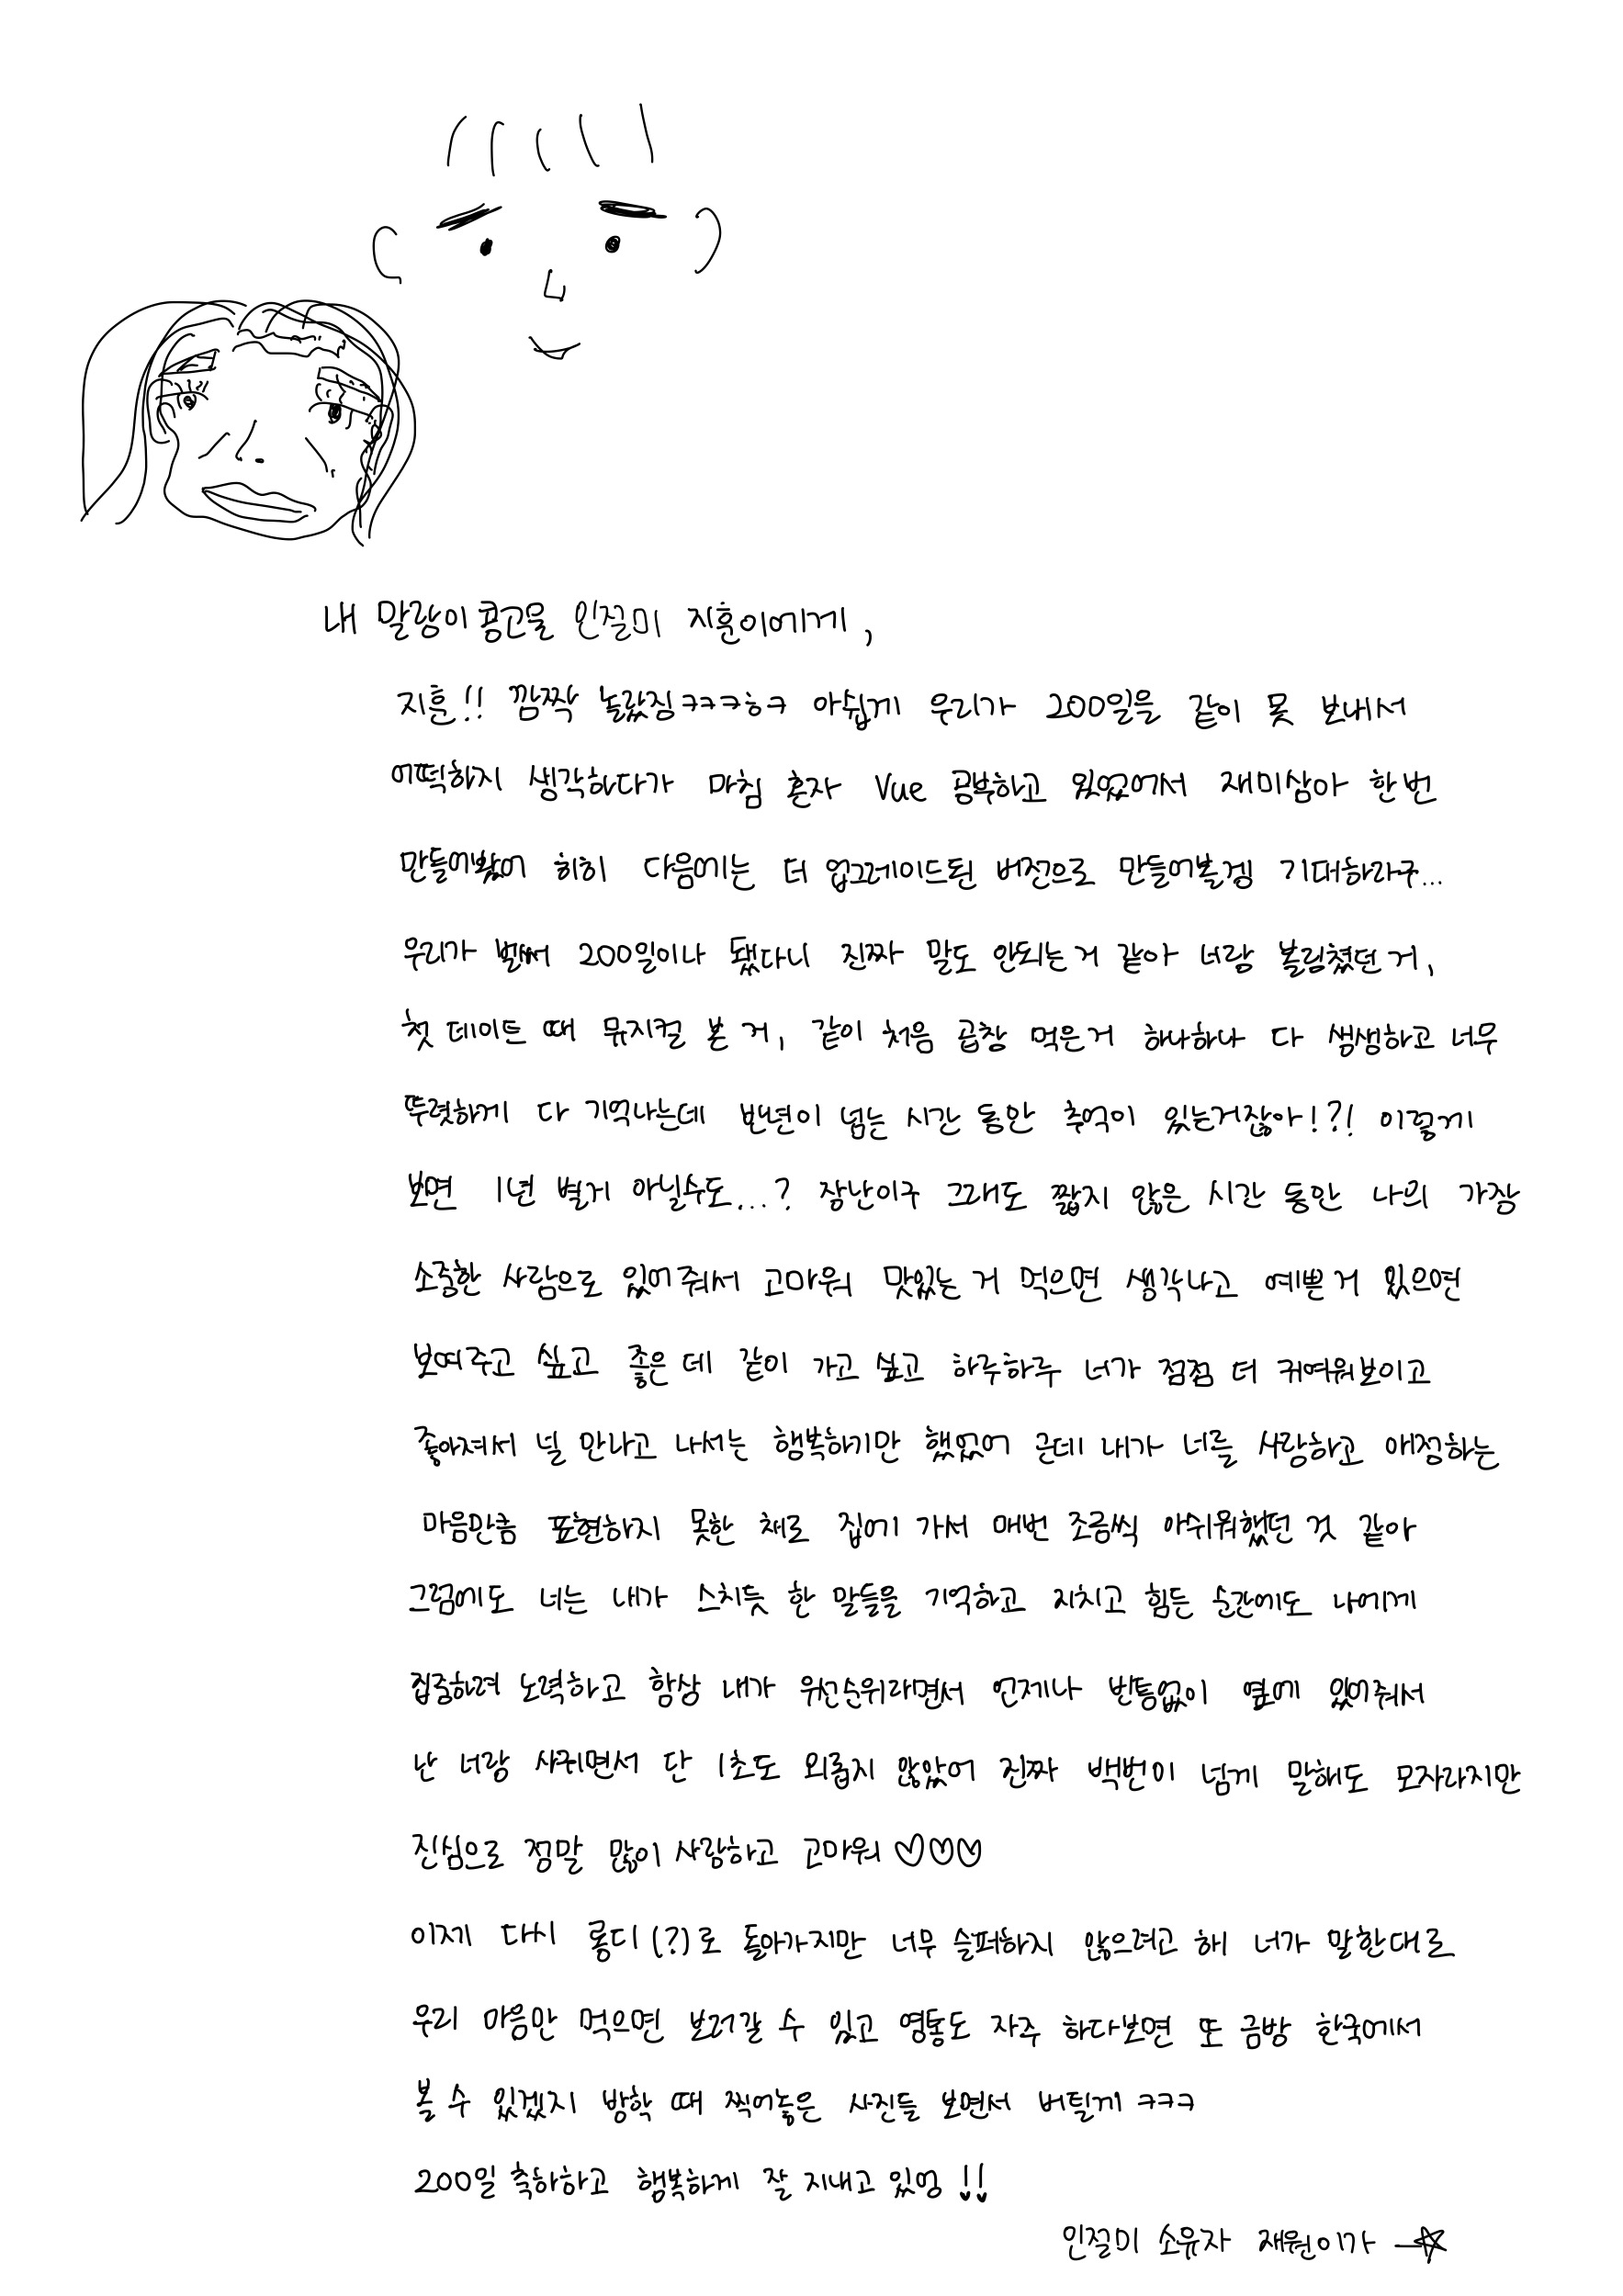 내 말랑이 콩고물 인절미 지훈이에게,
지훈!! 깜짝 놀랐징ㅋㅋㅋㅎㅋ 아쉽게 우리가 200일을 같이 못 보내서
어떡하지 생각하다가 마침 혼자 Vue 공부하고 있었어서 재미삼아 한번
만들어봤어 히히 다음에는 더 업그레이드된 버전으로 만들어볼겡 기대하라구...
우리가 벌써 200일이나 됐다니 진짜 말도 안되는 거 같아 너랑 볼링쳤던 거,
첫 데이트 때 뮤지컬 본 거, 같이 처음 곱창 먹은거 하나하나 다 생생하고 너무
뚜렷하게 다 기억나는데 반년이 넘는 시간 동안 추억이 있는거잖아!?! 이렇게
보면 1년 별거 아닐수도...? 장난이구 그래도 짧지 않은 시간 동안 나의 가장
소중한 사람으로 있어줘서 고마워 맛있는 거 먹으면 생각나고 예쁜 거 있으면
보여주고 싶고 좋은 데 같이 가고 싶고 하루하루 너가 점점 더 귀여워보이고
좋아져서 널 만나고 나서는 행복하기만 했었어 근데 내가 너를 사랑하고 애정하는
마음만큼 표현하지 못한 채로 집에 가서 매번 조금씩 아쉬워했던 것 같아
그럼에도 너는 내가 스치듯 한 말들을 기억하고 지치고 힘든 순간에도 나에게
집중하려 노력하고 항상 내가 우선순위라면서 언제나 빈틈없이 옆에 있어줘서
난 너랑 사귀면서 단 1초도 외롭지 않았어 진짜 백번이 넘게 말해도 모자라지만
진심으로 정말 많이 사랑하고 고마워 ♡♡♡
이제 다시 롱디(?)로 돌아가지만 너무 슬퍼하지 않으려고 해 너가 말한대로
우리 마음만 먹으면 보러갈 수 있고 영통도 자주 하다보면 또 금방 한국에서
볼 수 있겠지 방학 때 찍어놓은 사진들 보면서 버틸게 ㅋㅋㅋ
200일 축하하고 행복하게 잘 지내고 있엉 !!
인절미 소유자 재원이가 —☆